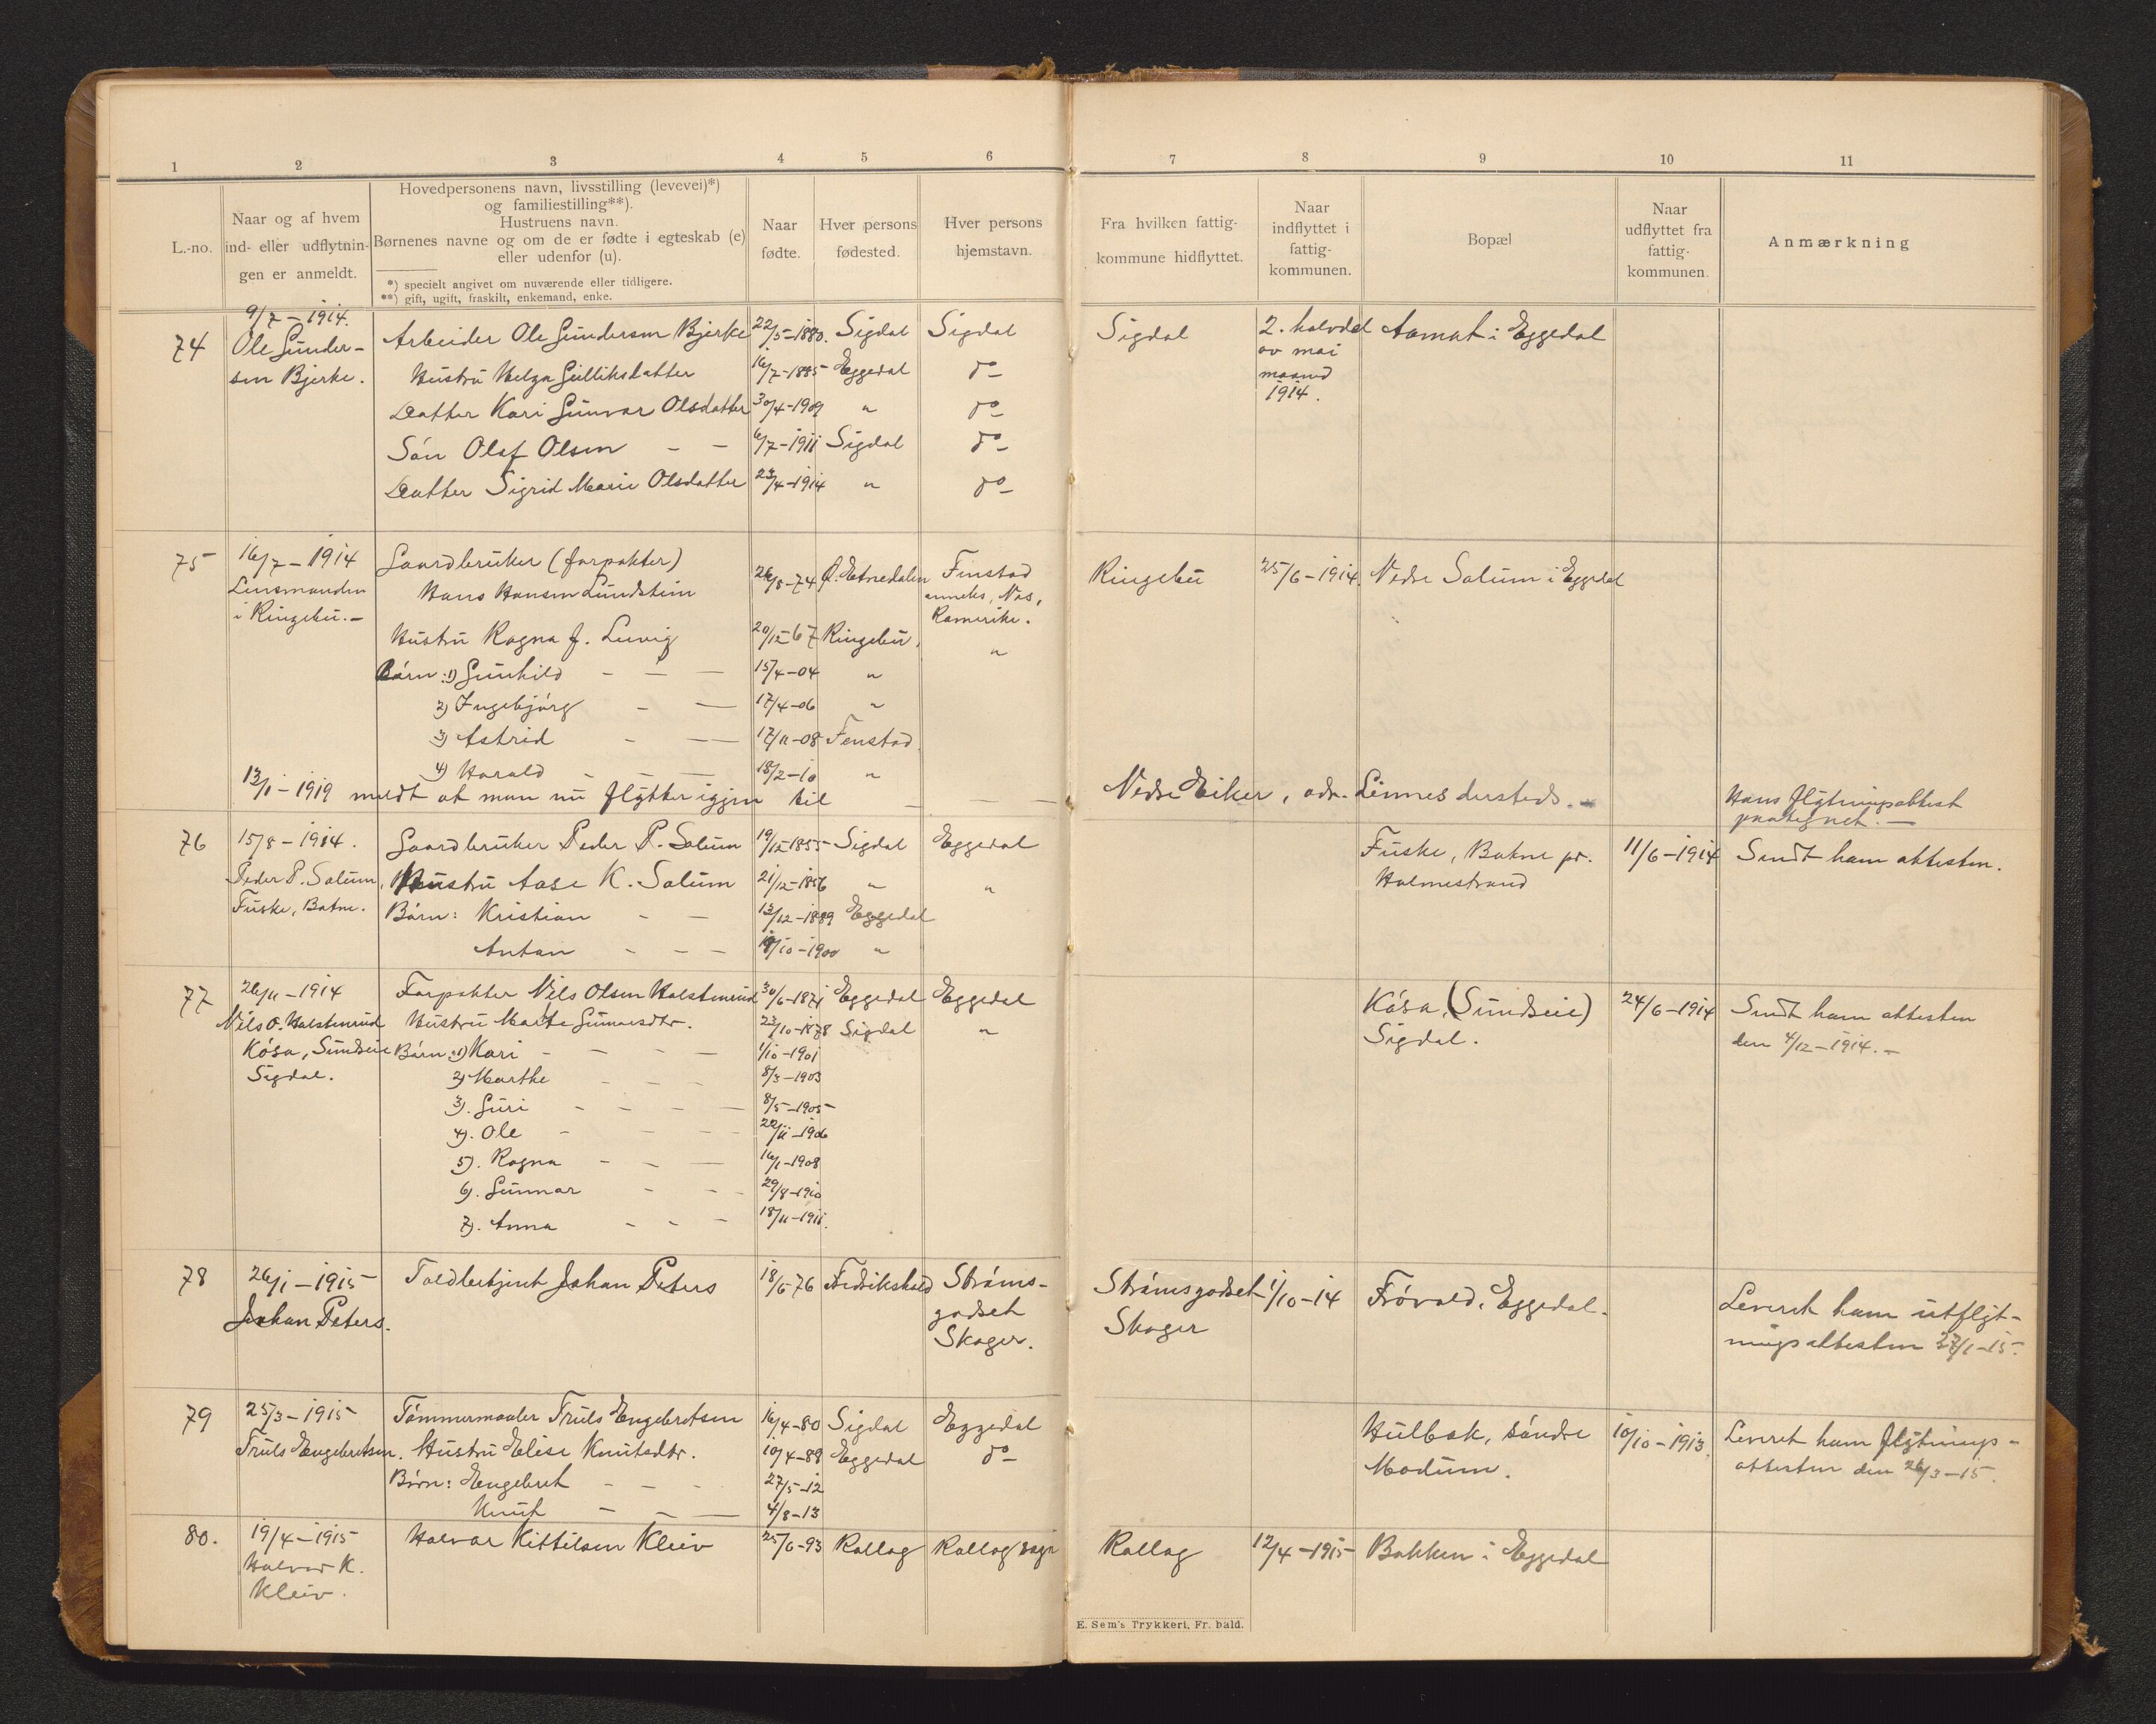 1 2 3 4 5 6 7 8 9 10 11
L.-no.
Naar og af hvem
ind- eller udflytnin-
gen er anmeldt.
Hovedpersonens navn, livsstilling (levevei)*)
og familiestilling**).
Hustruens navn.
Børnenes navne og om de er fødte i egteskab (e)
eller udenfor (u).
*) specielt angivet om nuværende eller tidligere.
**) gift, ugift, fraskilt, enkemand, enke.
Naar
fødte.
Hver persons
fødested.
Hver persons
hjemstavn.
Fra hvilken fattig-
kommune hidflyttet.
Naar
indflyttet i
fattig-
kommunen.
Bopæl
Naar
udflyttet fra
fattig-
kommunen.
Anmærkning
9/7 – 1914.
74 Ole Gunder- Arbeider Ole Gundersen Bjerke 22/5-1880. Sigdal Sigdal Sigdal 2. halvdel Aamot i Eggedal
sen Bjerke. Hustru Helga Gulliksdatter 16/7-1885 Eggedal do av mai
Datter Kari Gunvor Olsdatter 30/4-1909 " do maaned
1914.
Søn Olaf Olsen – – 6/7-1911 Sigdal do
Datter Sigrid Marie Olsdatter 23/4-1914 " do
75 16/7 – 1914 Gaardbruker (forpakter)
Lensmanden Hans Hansen Lundstein 26/8-74 Ø. Etnedalen Finstad Ringebu 25/6-1914. Nedre Solum i Eggedal
i Ringebu.– anneks, Nes,
Romerike.
Hustru Ragna f. Lunvig 20/12-67 Ringebu, "
Børn: 1) Gunhild – – – 15/4-04 "
2) Ingebjørg – – 17/4-06 "
3) Astrid – – 17/11-08 Fenstad
4) Harald – – – 18/2-10 "
13/1-1919 meldt at man nu flytter igjen til – – – Nedre Eiker, adr. Linnes dersteds. – Hans flytningsattest
paategnet. –
76 15/8 – 1914. Gaardbruker Peder P. Solum 19/12-1855 Sigdal Eggedal Fuske, Botne pr. 11/6-1914 Sendt ham attesten.
Peder P. Solum, Hustru Aase K. Solum 21/12-1856 " " Holmestrand
Fuske, Botne. Børn: Kristian – – 13/12-1889 Eggedal
Anton – – – /10-1900 "
77 26/11-1914 Forpakter Nils Olsen Holstenrud 30/6-1871 Eggedal Eggedal Køsa, (Sundseie) 24/6-1914 Sendt ham attesten
Nils O. Holstenrud Hustru Marte Gunnesdtr. 23/10-1878 Sigdal " Sigdal. den 4/12-1914.–
Køsa, Sundseie Børn: 1) Kari – – – – 1/10-1901
Sigdal. 2) Marthe – – – 8/3-1903
3). Guri – – – – 8/5-1905
4). Ole – – – 22/11-1906
5). Ragna – – – 16/1-1908
6). Gunnar – – – 29/8-1910
7). Anna – – – 18/11-1911.
78 26/1-1915 Toldbetjent Johan Peters 18/6-76 Fredrikshald Strøms- Strømsgodset 1/10-14 Frøvold, Eggedal.
Johan Peters. godset Skoger Leveret ham utflyt-
Skoger. ningsattesten 27/1-15.
79 25/3-1915 Tømmermaaler Truls Engebretsen 16/4-80 Sigdal Eggedal Hulbak, søndre 10/10-1913. Leveret ham flytnings-
Truls Engebretsen. Hustru Elise Knutsdtr. 10/4-88 Eggedal do Modum. attesten den 26/3-15.
Børn: Engebret – – – 27/5-12
Knut – – – 4/8-13
80. 19/4-1915 Halvor Kittilsen Kleiv 25/6-93 Rollag Rollag sogn Rollag 12/4-1915 Bakken i Eggedal
Halvor K.
Kleiv.
E. Sem's Trykkeri, Fr. hald.